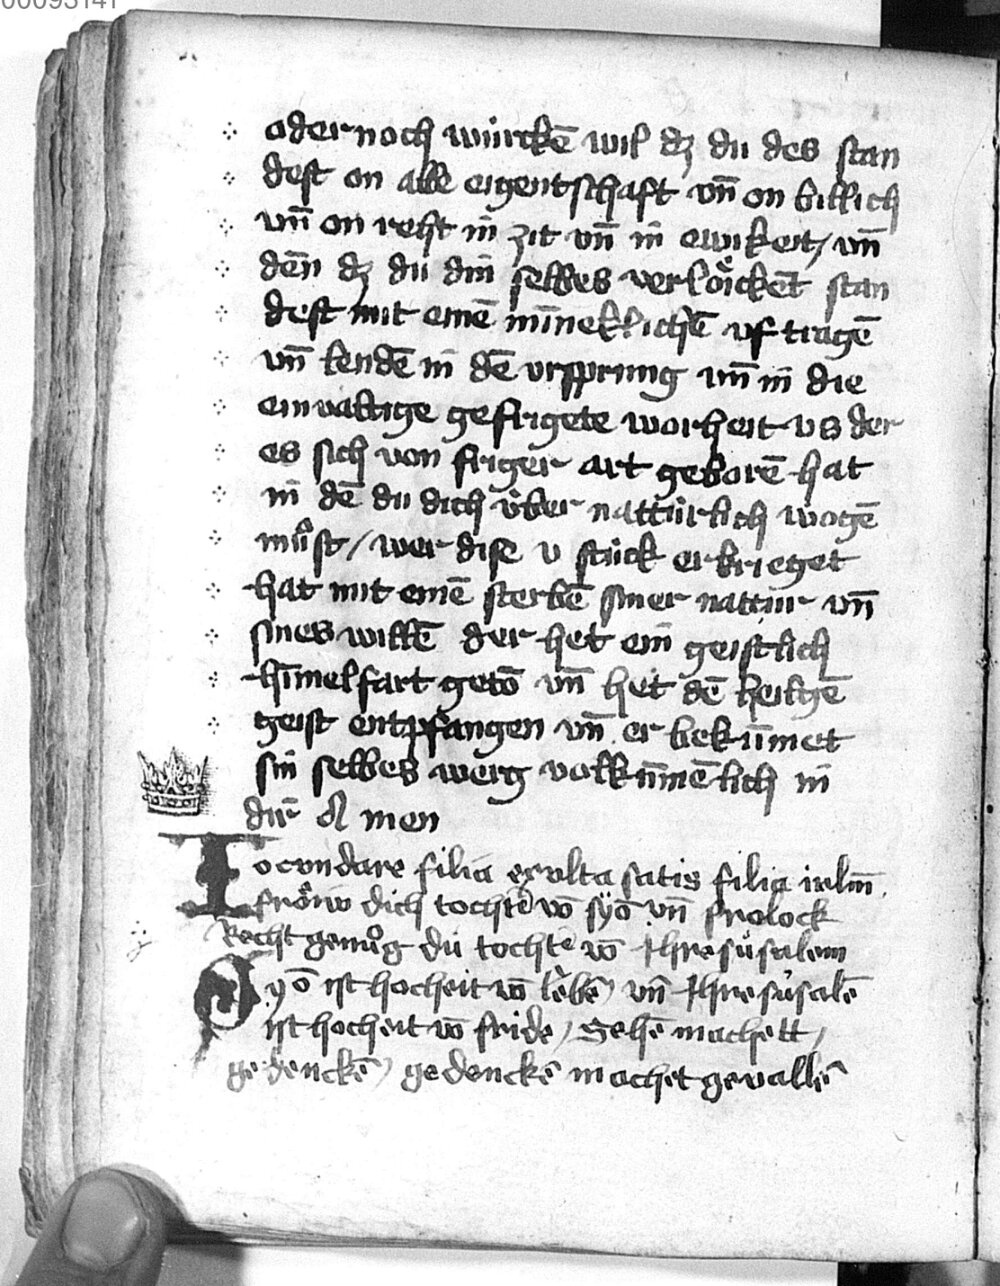 00093141
oder noch würckē wil dz du des stan
dest on alle eigentschaft vn̄ on billich
vn̄ on reht in zit vn̄ in ewikeit / vn̄
dēn dz du din selbes verloͤickent stan
dest mit einē minneklichē vf tragē
vn̄ lendē in dē vrsprung vn̄ in die
einvaltige gefrigete worheit vs der
es sich von friger art geborē hat
in dē du dich über nattürlich wogē
muͦst / wer dise v stück erkrieget
hat mit einē sterbē siner nattur vn̄
sines willē der het ein geistlich
himelfart getō vn̄ het dē heilgē
geist entpfangen vn̄ er bekūmet
sin selbes werg volkūmēlich in
men
Iocundare filia exulta satis filia irlm̄
froͤiw dich tochtē vō syō vn̄ frolock
Recht genuͦg du tochtē vō Jhresusalem
Syō ist hocheit vō lebē vn̄ Jhresusalē
ist hocheit vō fride / Sehē machett /
gedenckē / gedenckē machet gevallē